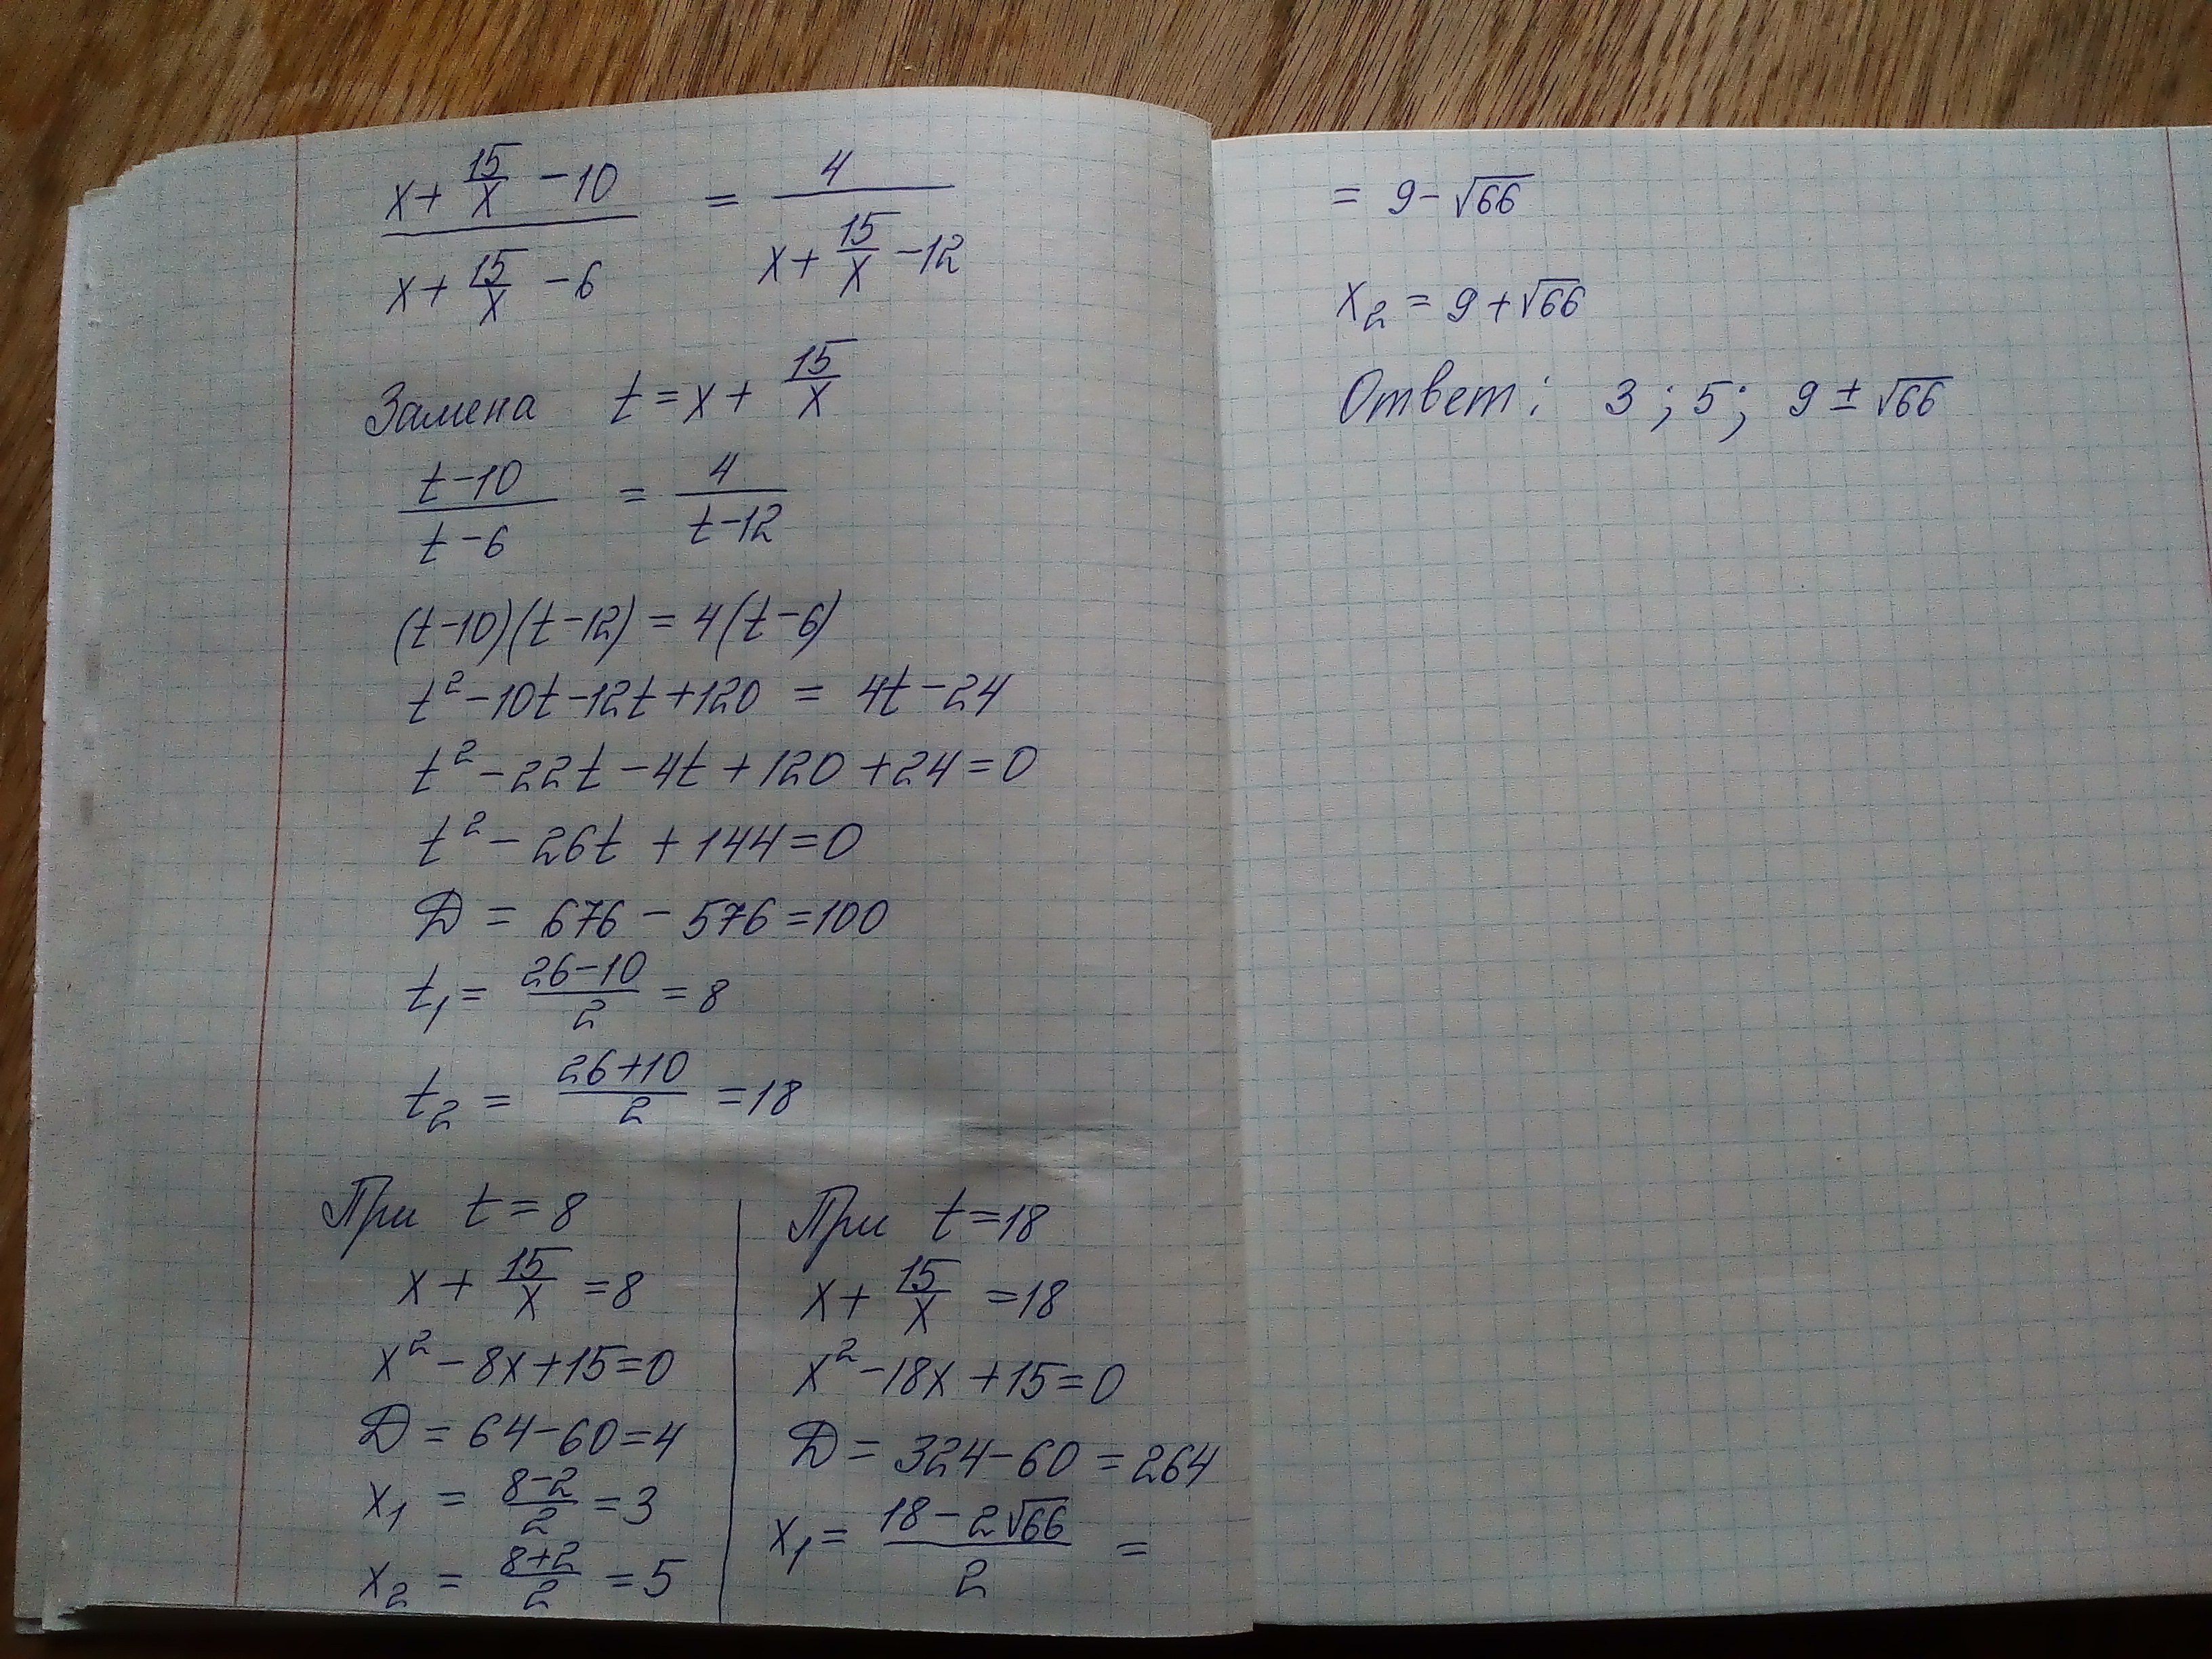 (x + 15/x - 10)/(x + 15/x - 6) = 4/(x + 15/x - 12)
Замена t = x + 15/x
(t-10)/(t-6) = 4/(t-12)
(t-10)(t-12) = 4(t-6)
t² - 10t - 12t + 120 = 4t - 24
t² - 22t - 4t + 120 + 24 = 0
t² - 26t + 144 = 0
D = 676 - 576 = 100
t₁ = (26-10)/2 = 8
t₂ = (26+10)/2 = 18
При t = 8
x + 15/x = 8
x² - 8x + 15 = 0
D = 64 - 60 = 4
x₁ = (8-2)/2 = 3
x₂ = (8+2)/2 = 5
При t = 18
x + 15/x = 18
x² - 18x + 15 = 0
D = 324 - 60 = 264
x₁ = (18 - 2√66)/2 =
= 9 - √66
x₂ = 9 + √66
Ответ: 3; 5; 9 ± √66